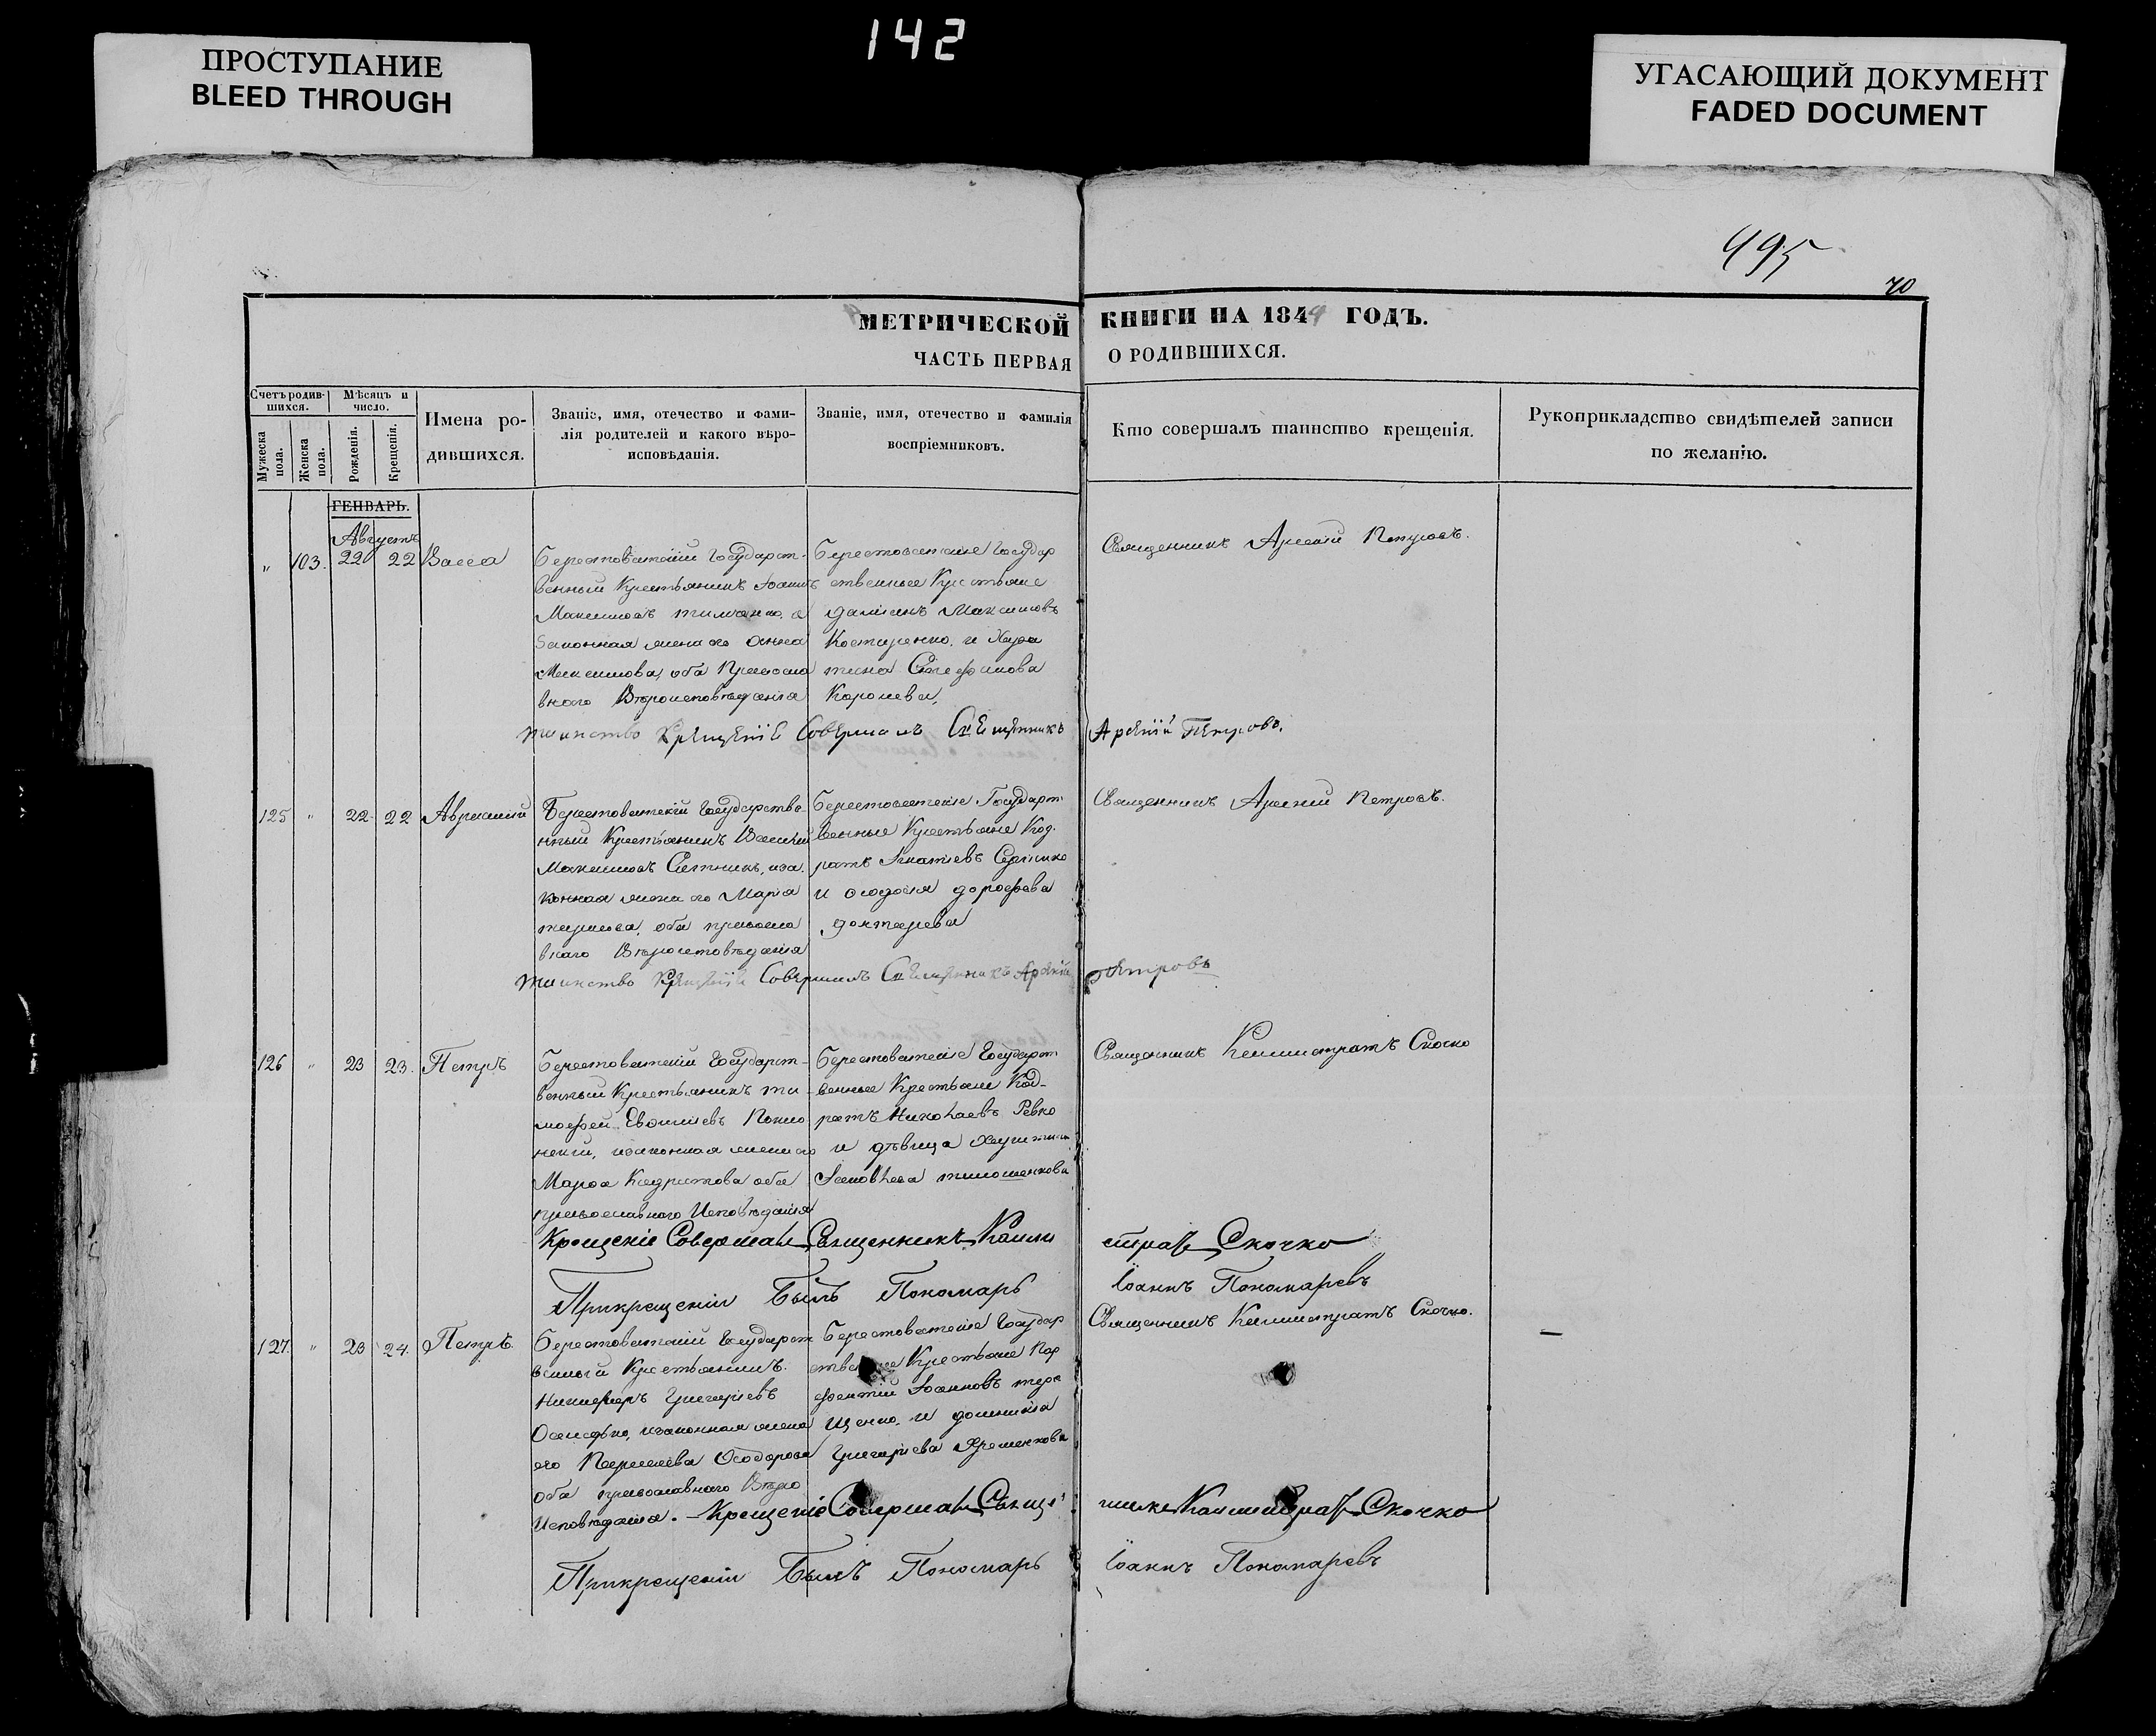 142
ПРОСТУПАНИЕ
BLEED THROUGH
УГАСАЮЩИЙ ДОКУМЕНТ
FADED DOCUMENT
495
70
МЕТРИЧЕСКОЙ КНИГИ НА 1844 ГОДЪ.
ЧАСТЬ ПЕРВАЯ О РОДИВШИХСЯ.
Счетъ родившихся.
Мужеска пола.
Женска пола.
Мѣсяцъ и число.
Рожденія.
Крещенія.
Имена родившихся.
Званіе, имя, отечество и фамилія родителей и какого вѣроисповѣданія.
Званіе, имя, отечество и фамилія воспріемниковъ.
Кто совершалъ таинство крещенія.
Рукоприкладство свидѣтелей записи по желанію.
ГЕНВАРЬ.
Августъ
„ 103. 22 22 Васса
Берестоватскій Государст-
венный Крестьянинъ Іоаннъ
Максимовъ
законная жена его Анна
Максимова, оба Правосла
внаго Вѣроисповѣданія
Берестоватскіе Государ
ственные Крестьяне
Даміанъ Максимовъ
Костыренко, и Хари
тина Стефанова
Королева,
Священникъ Арсеній Петровъ.
таинство крещеніе Совершилъ Священникъ Арсеній Петровъ.
125 " 22 22
Берестоватскій Государстве
нный Крестьянинъ Василій
Максимовъ Ситникъ, иза
конная жена его Марія
оба правосла
внаго Вѣроисповѣданія
Берестоватскіе Государст
венные Крестьяне Код-
ратъ Игнатіевъ
и Феодосія Дорофеева
Священникъ Арсеній Петровъ.
таинство крещеніе Совершилъ Священникъ Арсеній Петровъ
126 " 23 23. Петръ
Берестоватскій Государст-
венный Крестьянинъ Ти
мофей
изаконная жена его
Марфа Кодратова оба
православнаго Исповѣданія
Берестоватскіе Государст
венные Крестьяне Код-
ратъ Николаевъ Ревко
и дѣвица Харитина
Іаковлева Тимошенкова
Священникъ Каллистратъ Скочко
Крещеніе Совершалъ Священникъ Каллистратъ Скочко
Прикрещеніи Былъ Пономарь Іоаннъ Пономаревъ
127. " 23 24. Петръ.
Берестоватскій Государст
венный Крестьянинъ.
Никифоръ Григоріевъ
изаконная жена
его Параскева Ѳеодорова
оба православнаго Вѣро
Исповѣданія.
Берестоватскіе Государ
ственные Крестьяне Пар
фентій Іоанновъ Тере
щенко, и Домникія
Григоріева Яременкова
Священникъ Каллистратъ Скочко.
Крещеніе Совершалъ Священникъ Каллистратъ Скочко
Прикрещеніи Былъ Пономарь Іоаннъ Пономаревъ